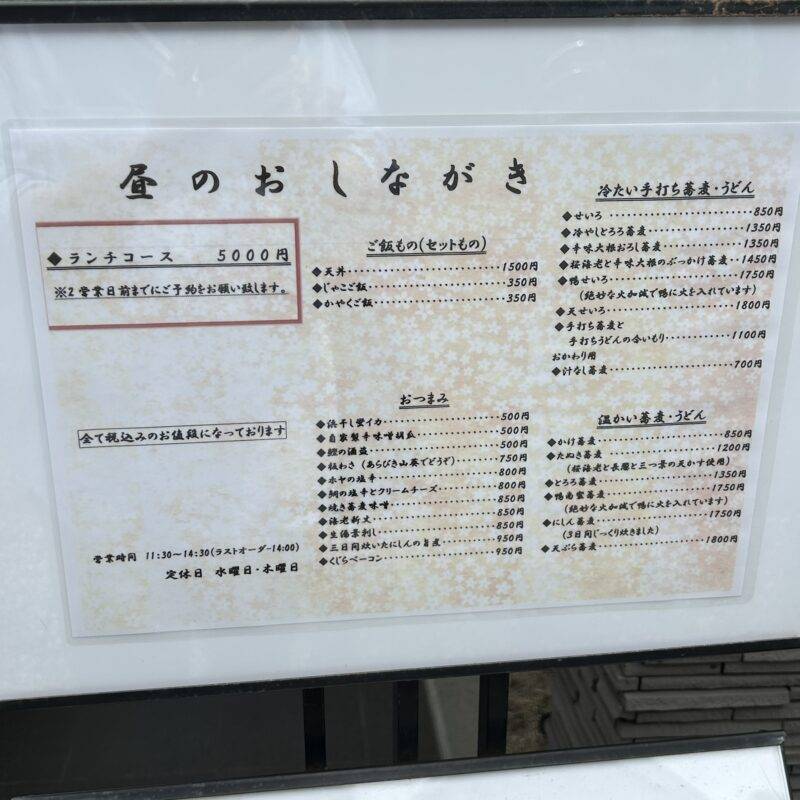 昼のおしながき
◆ランチコース 5000円
※2営業日前までにご予約をお願い致します。
全て税込みのお値段になっております
営業時間 11:30～14:30(ラストオーダー14:00)
定休日 水曜日・木曜日
ご飯もの(セットもの)
◆天丼 1500円
◆じゃこご飯 350円
◆かやくご飯 350円
おつまみ
◆浜干し蛍イカ 500円
◆自家製辛味噌胡瓜 500円
◆鰹の酒盗 500円
◆板わさ(あらびき山葵でどうぞ) 750円
◆ホヤの塩辛 800円
◆鯛の塩辛とクリームチーズ 800円
◆焼き蕎麦味噌 850円
◆海老新丈 850円
◆生湯葉刺し 850円
◆三日間炊いたにしんの旨煮 950円
◆くじらベーコン 950円
冷たい手打ち蕎麦・うどん
◆せいろ 850円
◆冷やしとろろ蕎麦 1350円
◆辛味大根おろし蕎麦 1350円
◆桜海老と辛味大根のぶっかけ蕎麦 1450円
◆鴨せいろ 1750円
(絶妙な火加減で鴨に火を入れています)
◆天せいろ 1800円
◆手打ち蕎麦と
手打ちうどんの合いもり 1100円
おかわり用
◆汁なし蕎麦 700円
温かい蕎麦・うどん
◆かけ蕎麦 850円
◆たぬき蕎麦 1200円
(桜海老と長葱と三つ葉の天かす使用)
◆とろろ蕎麦 1350円
◆鴨南蛮蕎麦 1750円
(絶妙な火加減で鴨に火を入れています)
◆にしん蕎麦 1750円
(3日間じっくり炊きました)
◆天ぷら蕎麦 1800円